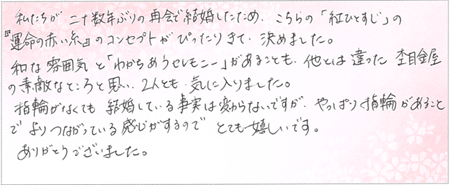 私たちが二十数年ぶりの再会で結婚したため、こちらの「紅ひとすじ」の
『運命の赤い糸』のコンセプトがぴったりきて、決めました。
和な雰囲気と「わかちあうセレモニー」があることも、他とは違った杢目金屋
の素敵なところと思い、2人とも気に入りました。
指輪がなくても結婚している事実は変わらないですが、やっぱり指輪があること
でよりつながっている感じがするのでとても嬉しいです。
ありがとうございました。